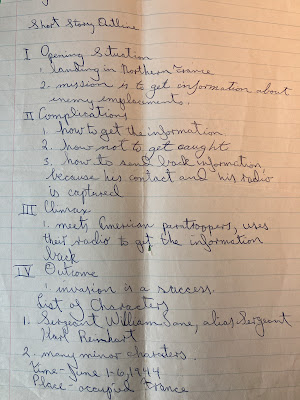 Short Story Outline
I Opening Situation
1. landing in Northern France
2. mission is to get information about
enemy emplacements.
II Complications
1. how to get the information
2. how not to get caught
3. how to send back information
because his contact and his radio
is captured
III Climax
1. meets American paratroppers, uses
their radio to get the information
back
IV Outcome
1. invasion is a success.
List of Characters
1. Sergeant William Sane, alias Sergeant
Karl Reinhart
2. many minor charaters.
Time - June 1-6, 1944
Place - occupied France